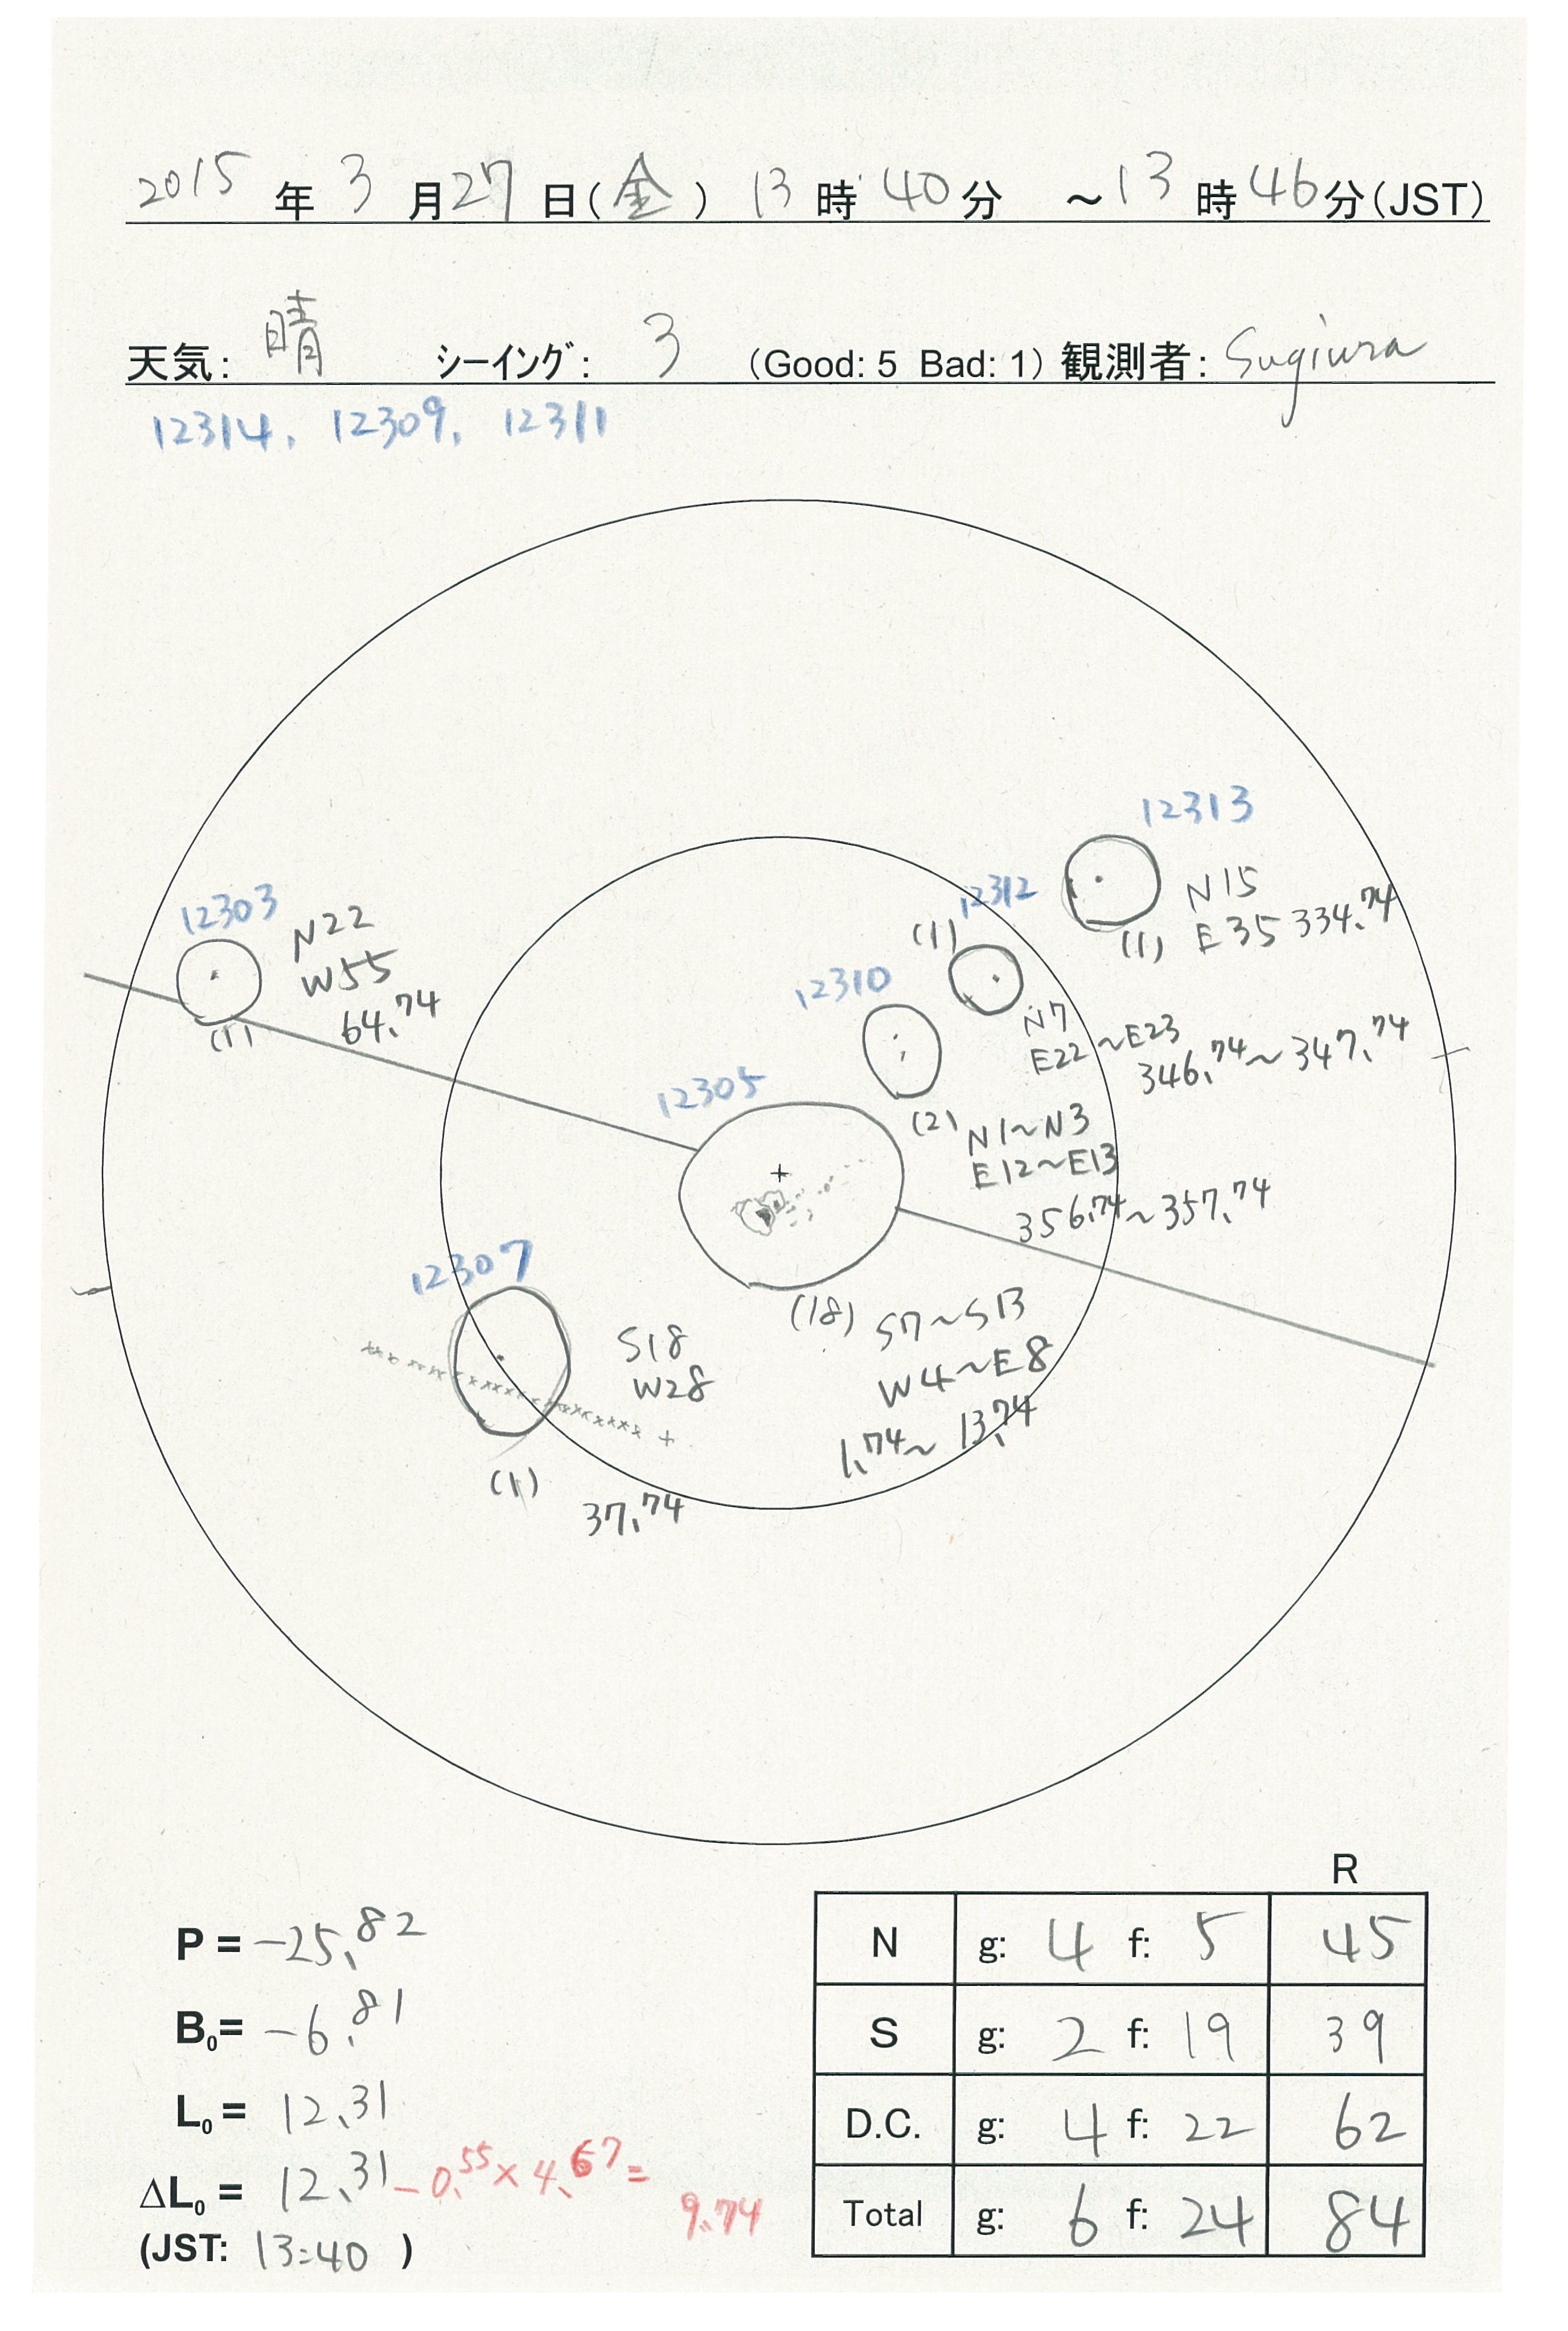 2015 年 3 月 27 日(金) 13 時 40 分 ～13 時 46 分(JST)
天気: 晴 シーイング: 3 (Good: 5 Bad: 1) 観測者: Sugiura
12314, 12309, 12311
12313
N15
(1) E35 334.74
12312
(1)
12303
N22
W55
64.74
(1)
12310
N7
E22～E23
346.74～347.74
12305
(2) N1～N3
E12～E13
356.74～357.74
12307
(18) S7～S13
W4～E8
1.74～13.74
S18
W28
(1)
37.74
R
P = -25.82
B0= -6.81
L0= 12.31
ΔL0= 12.31 -0.55×4.67=
9.74
(JST: 13:40 )
N g: 4 f: 5 45
S g: 2 f: 19 39
D.C. g: 4 f: 22 62
Total g: 6 f: 24 84